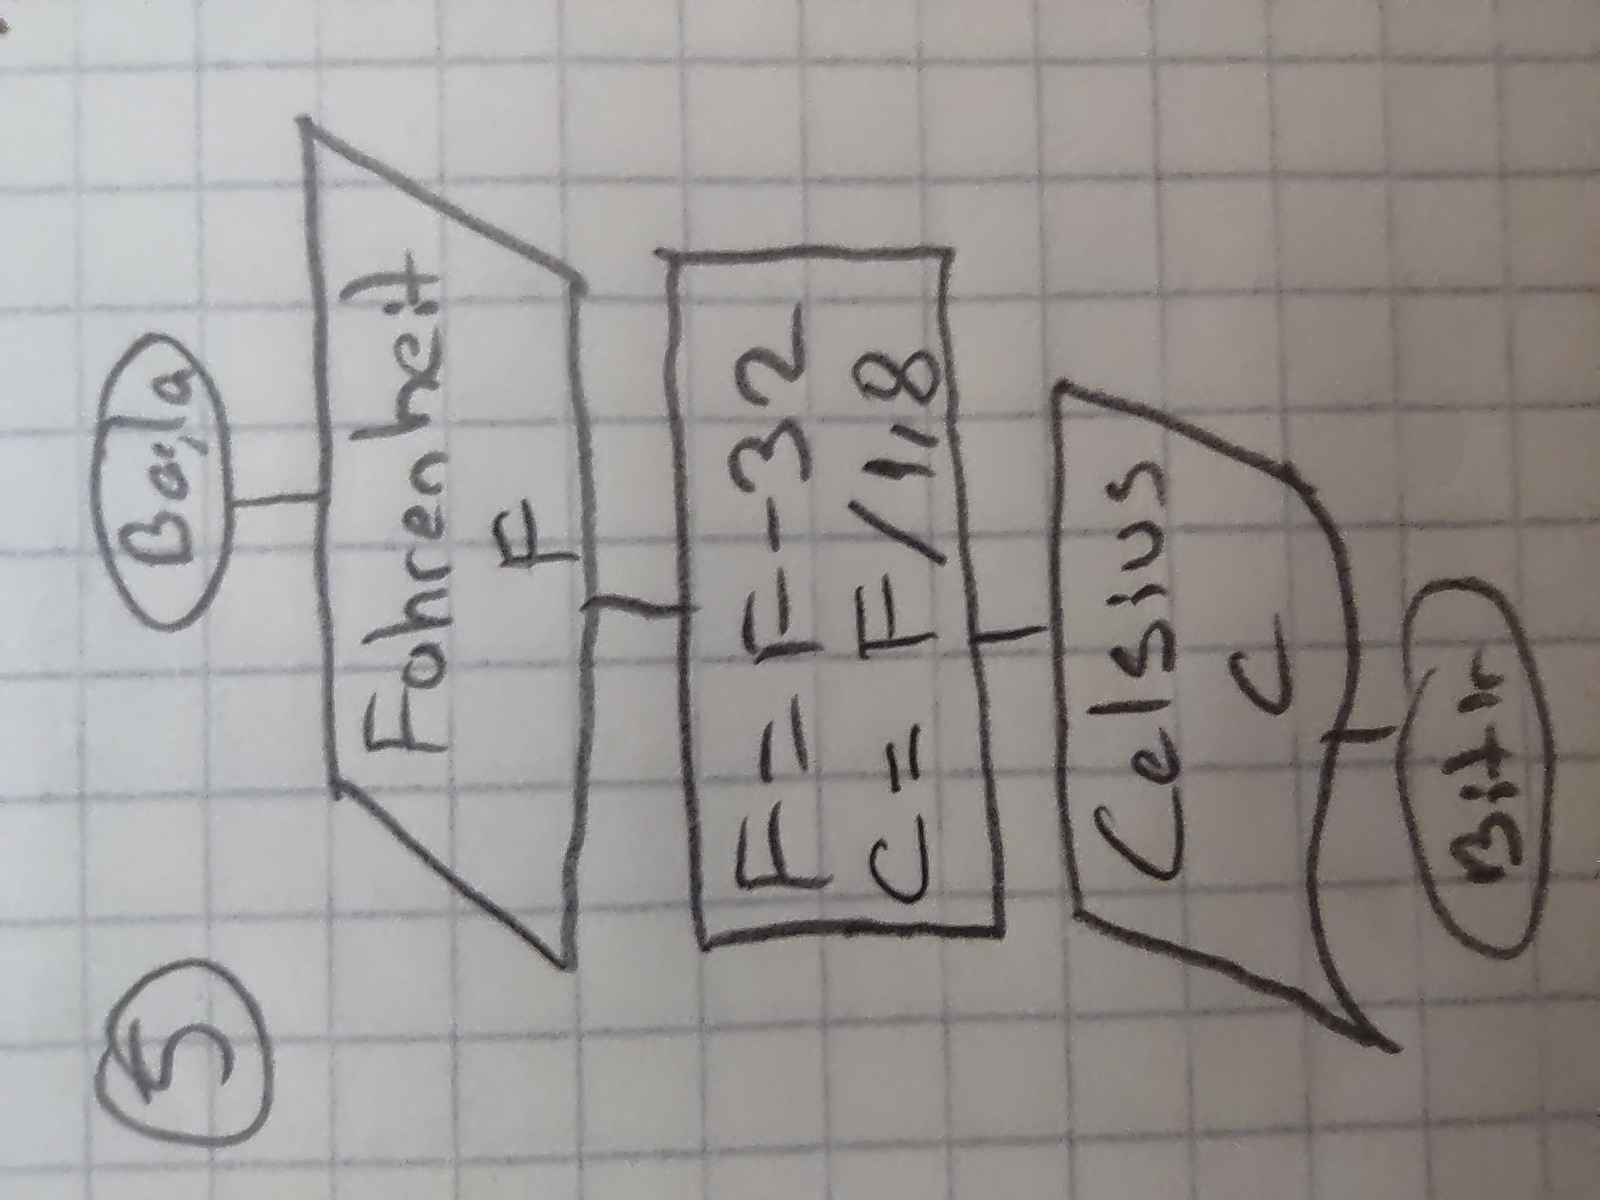 5
Başla
Fahrenheit
F
F = F - 32
C = F / 1,8
Celsius
C
Bitir